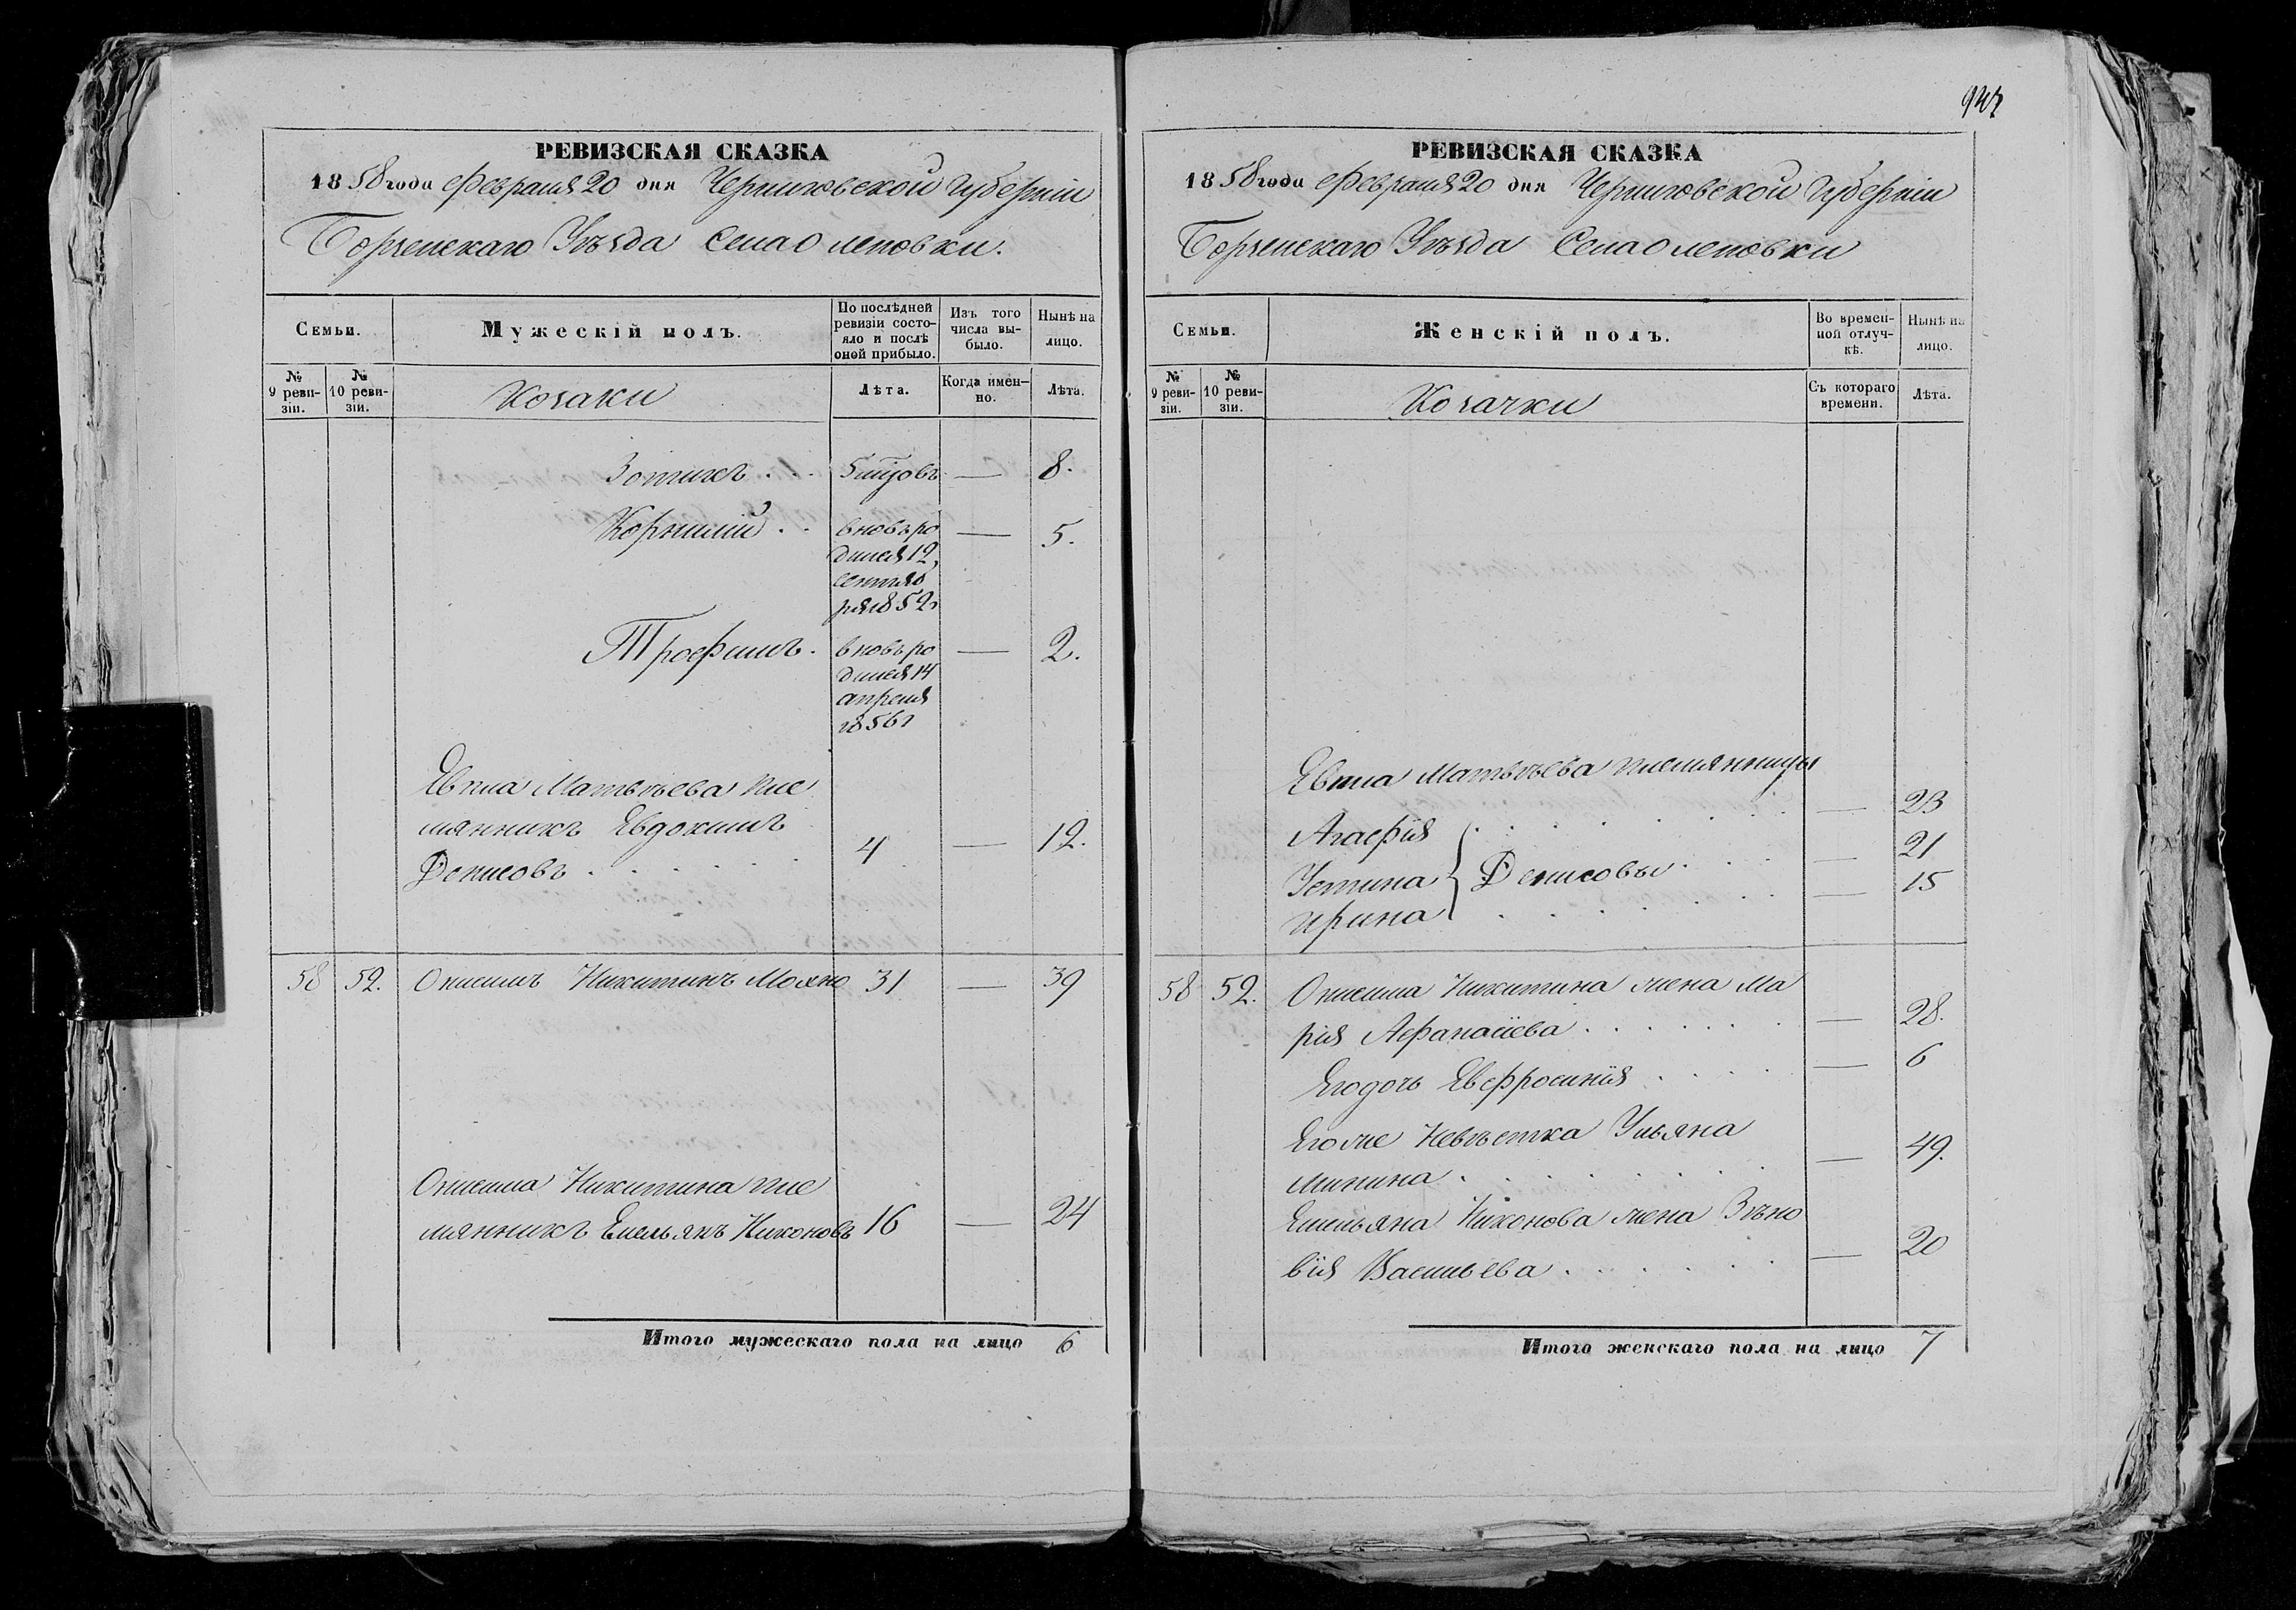 947
РЕВИЗСКАЯ СКАЗКА
1858 года Февраля 20 дня Черниговской Губерніи
Борзенскаго Уѣзда Села Оленовки.
Семьи.
Мужескій полъ.
По послѣдней ревизіи состояло и послѣ оной прибыло.
Изъ того числа выбыло.
Нынѣ на лицо.
№ 9 ревизіи.
№ 10 ревизіи.
Козаки
Лѣта.
Когда именно.
Лѣта.
Зотикъ . . 5 м﻿цовъ — 8.
Корнилій . . вновь ро — 5.
дился 12,
сентяб
ря 1852 г
Трофимъ . вновь ро — 2.
дился 14
апреля
1856 г
Евтиа Матвѣева пле
мянникъ Евдокимъ
Денисовъ . . . . . 4 — 12.
58 52. Онисимъ Никитинъ Мояно 31 — 39
Онисима Никитина пле
мянникъ Емельянъ Никоновъ 16 — 24
Итого мужескаго пола на лицо 6
РЕВИЗСКАЯ СКАЗКА
1858 года Февраля 20 дня Черниговской Губерніи
Борзенскаго Уѣзда Села Оленовки
Семьи.
Женскій полъ.
Во временной отлучкѣ.
Нынѣ на лицо.
№ 9 ревизіи.
№ 10 ревизіи.
Козачки
Съ котораго времени.
Лѣта.
Евтиа Матвѣева племянницы
Агафія . . . . . . . — 23
Устина } Денисовы . . . — 21
Ирина . . . . . . — 15
58 52. Онисима Никитина жена Ма
рія Афанасіева . . . . . . — 28.
Егодочь Евфросинія . . . . — 6
Егоже Невѣстка Ульяна
Минина . . . . . . . — 49.
Емельяна Никонова жена Зѣно
вія Васильева . . . . . . — 20
Итого женскаго пола на лицо 7